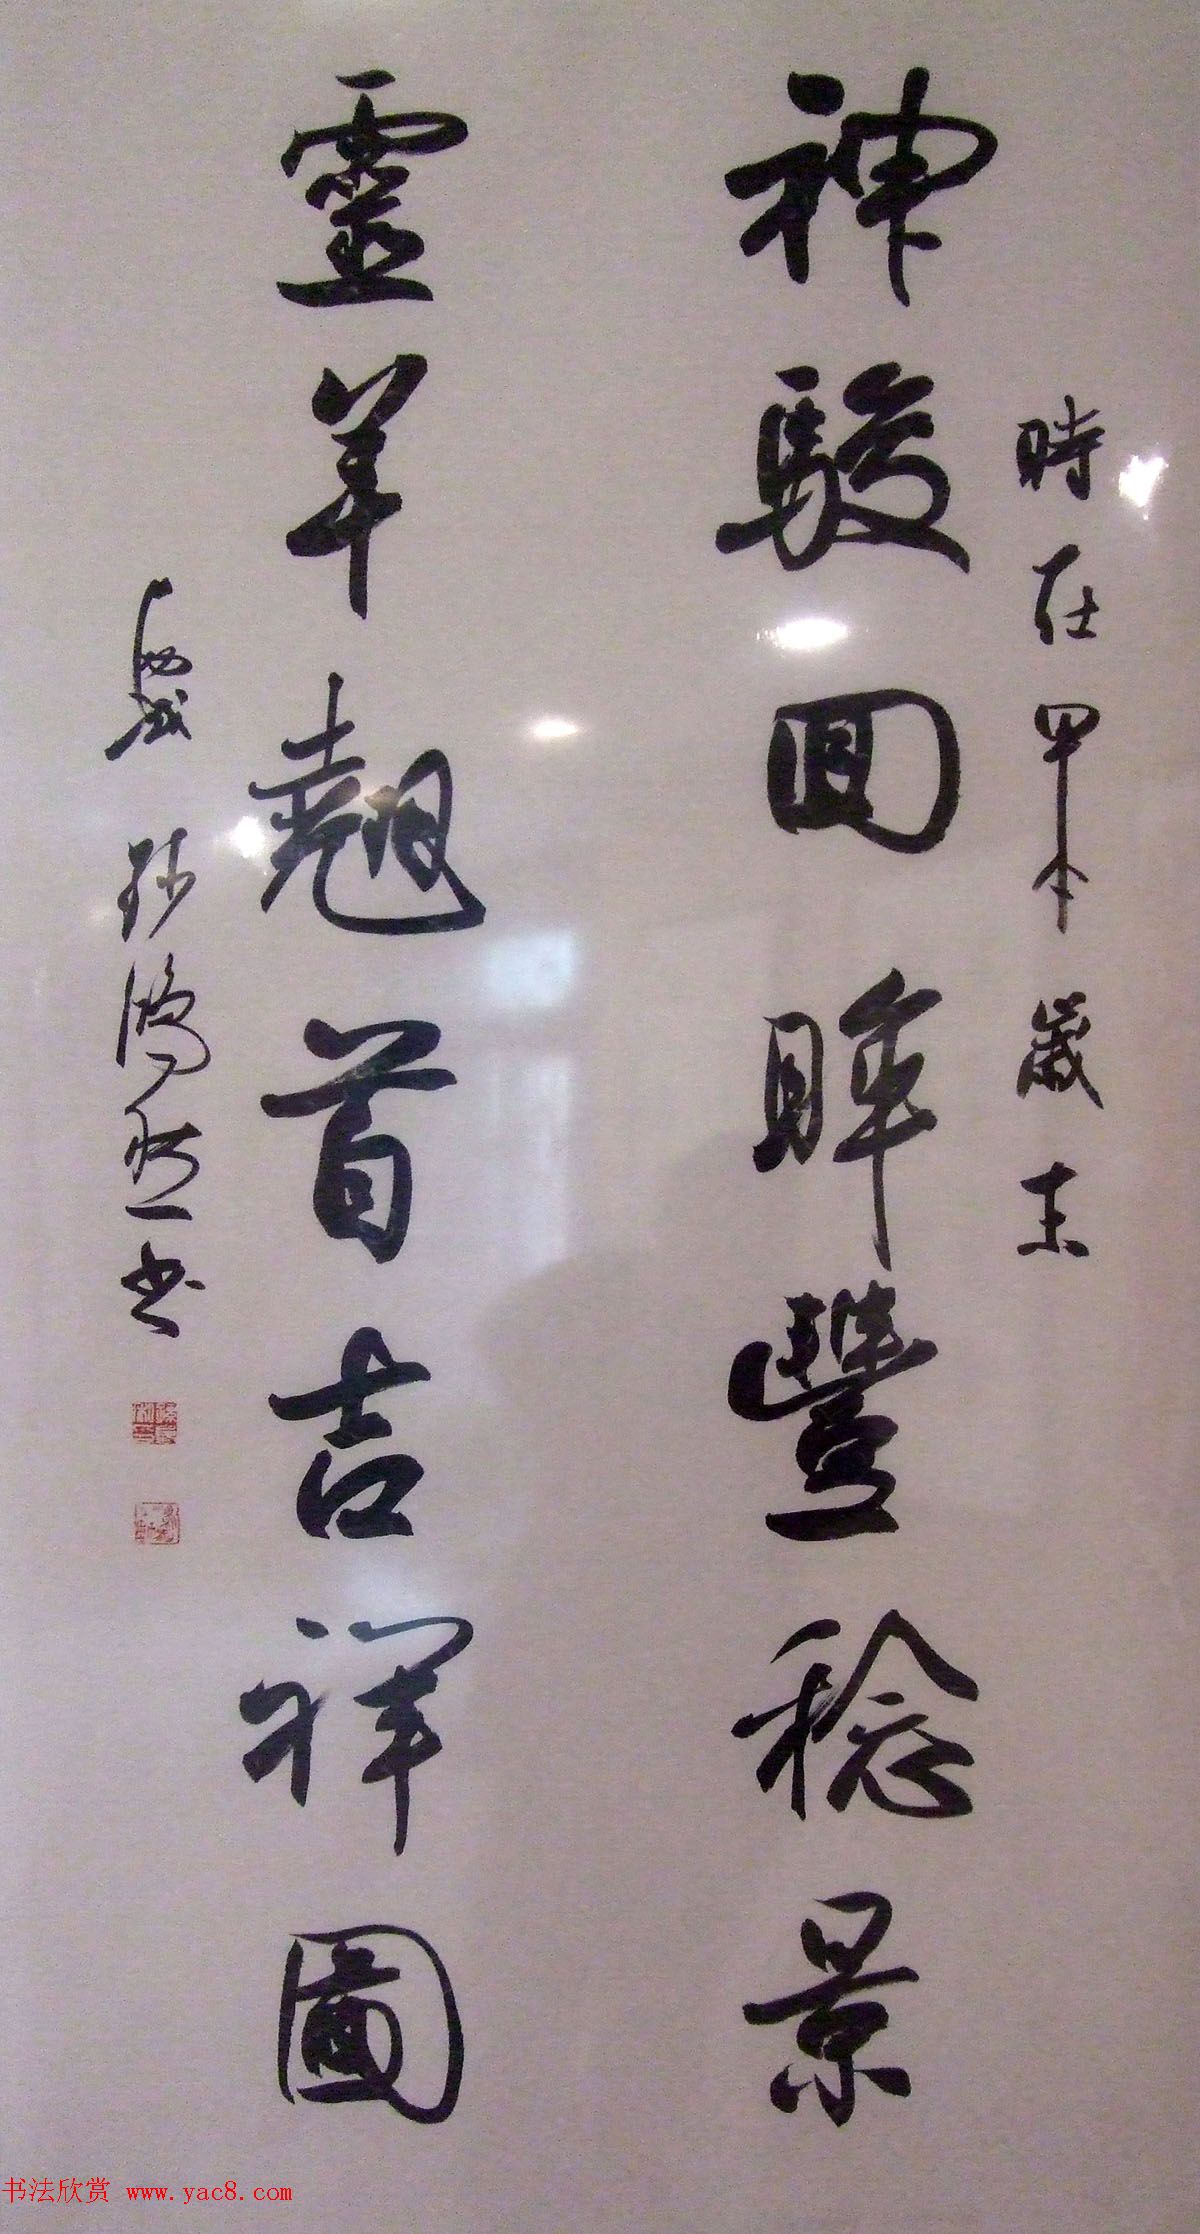 時在甲午歲末
神駿回眸豐稔景
靈羊翹首吉祥圖
孫鴻書
书法欣赏 www.yac8.com